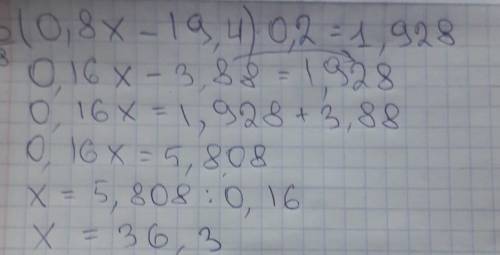 (0,8x - 19,4) 0,2 = 1,928
0,16x - 3,88 = 1,928
0,16x = 1,928 + 3,88
0,16x = 5,808
x = 5,808 : 0,16
x = 36,3